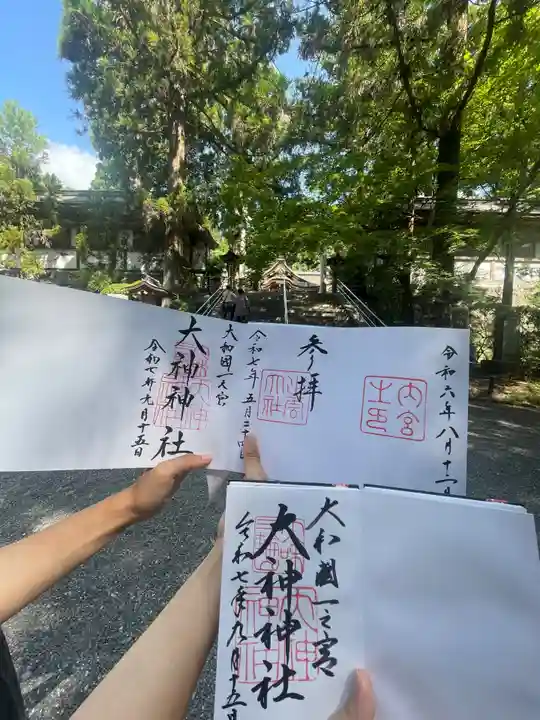 令和六年八月十二日
内宮
之印
参拝
令和七年五月二十四日
大和國一之宮
大神神社
令和七年九月十五日
大和國一之宮
大神神社
令和七年九月十五日